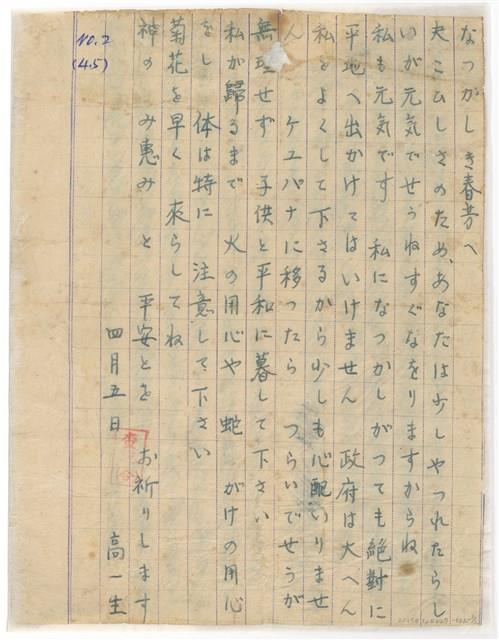 なつかしき春芳へ
夫こひしさのため、あなたは少しやつれたらし
いが元気でせうねすぐなをりますからね
私も元気です 私になつかしがつても絶対に
平地へ出かけてはいけません 政府は大へん
私をよくして下さるから少しも心配いりませ
ん ケユパナに移つたら つらいでせうが
無理せず 子供と平和に暮して下さい
私が歸るまで 火の用心や 蛇 がけの用心
をし 体は特に 注意して下さい
菊花を早く 來らしてね
神の み惠み と 平安とを お祈りします
四月五日 高一生
NO.2
(4.5)